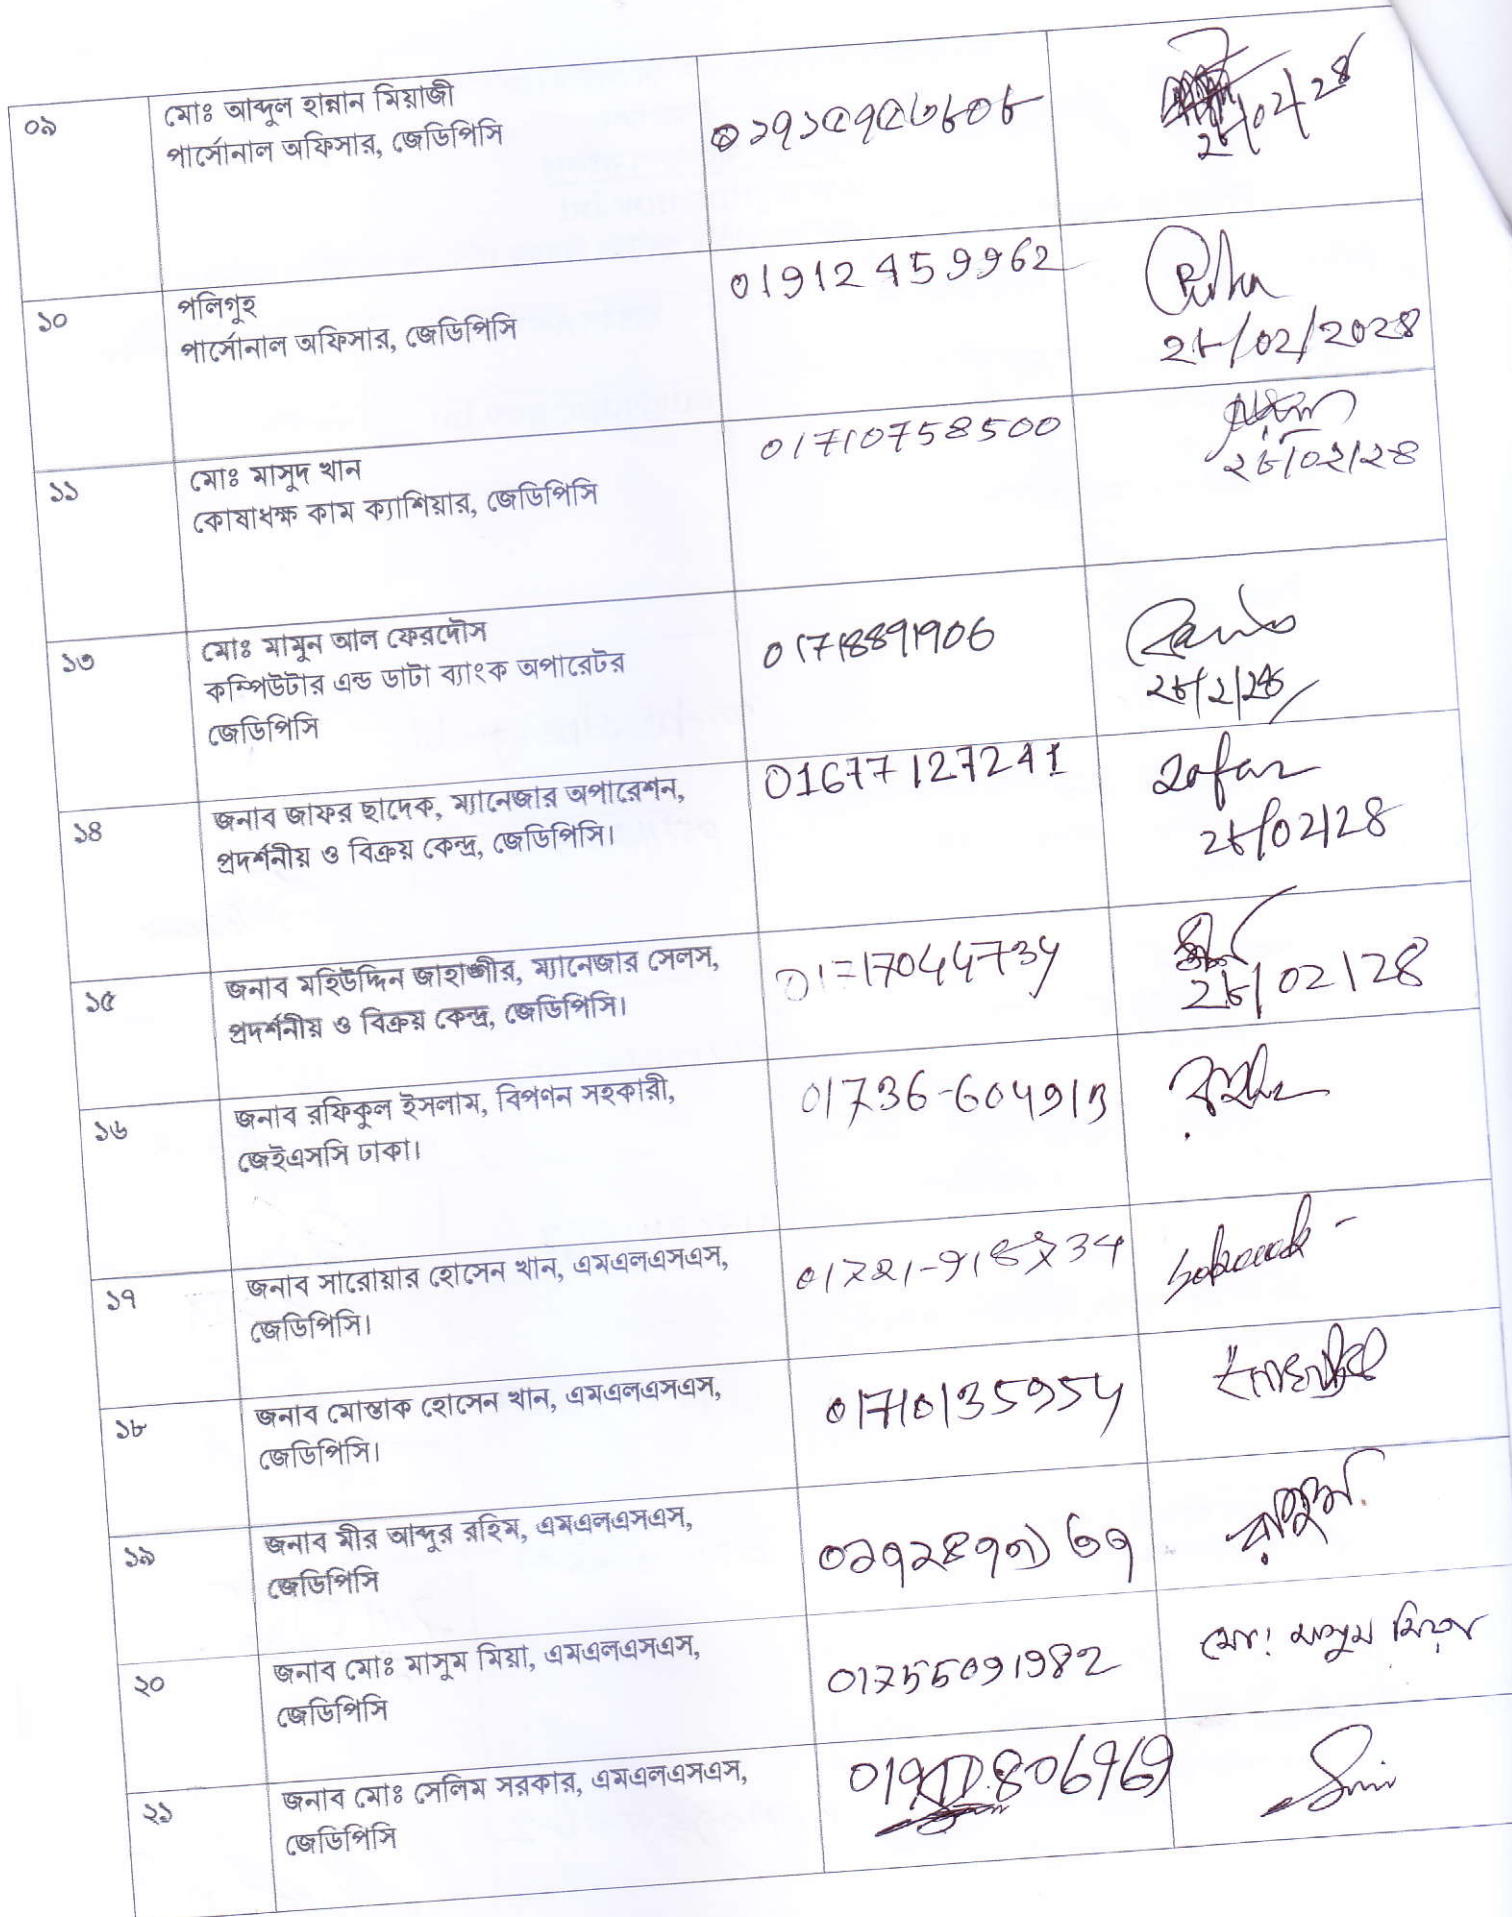 ০৯
মোঃ আব্দুল হান্নান মিয়াজী
পার্সোনাল অফিসার, জেডিপিসি
২৮/০২/২৪
১০
পলিগুহ
পার্সোনাল অফিসার, জেডিপিসি
01912459962
২৮/০২/২০২৪
১১
মোঃ মাসুদ খান
কোষাধক্ষ কাম ক্যাশিয়ার, জেডিপিসি
01710758500
২৮/০২/২৪
১৩
মোঃ মামুন আল ফেরদৌস
কম্পিউটার এন্ড ডাটা ব্যাংক অপারেটর
জেডিপিসি
01718891906
১৪
জনাব জাফর ছাদেক, ম্যানেজার অপারেশন,
প্রদর্শনীয় ও বিক্রয় কেন্দ্র, জেডিপিসি।
01677127241
২৮/০২/২৪
১৫
জনাব মহিউদ্দিন জাহাঙ্গীর, ম্যানেজার সেলস,
প্রদর্শনীয় ও বিক্রয় কেন্দ্র, জেডিপিসি।
01717044734
২৮/০২/২৪
১৬
জনাব রফিকুল ইসলাম, বিপণন সহকারী,
জেইএসসি ঢাকা।
01736-604913
১৭
জনাব সারোয়ার হোসেন খান, এমএলএসএস,
জেডিপিসি।
১৮
জনাব মোস্তাক হোসেন খান, এমএলএসএস,
জেডিপিসি।
01710135954
১৯
জনাব মীর আব্দুর রহিম, এমএলএসএস,
জেডিপিসি
২০
জনাব মোঃ মাসুম মিয়া, এমএলএসএস,
জেডিপিসি
01755091982
মোঃ মাসুম মিয়া
২১
জনাব মোঃ সেলিম সরকার, এমএলএসএস,
জেডিপিসি